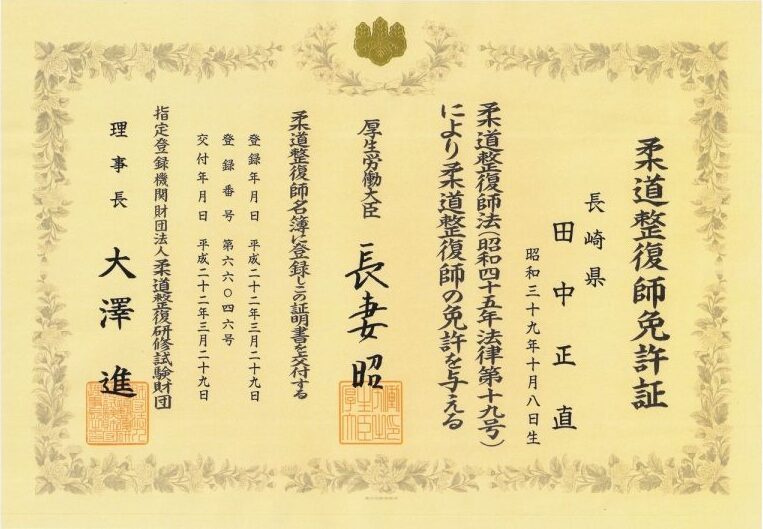 柔道整復師免許証
長崎県
田中正直
昭和三十九年十月八日生
柔道整復師法(昭和四十五年法律第十九号)
により柔道整復師の免許を与える
厚生労働大臣 長妻昭
柔道整復師名簿に登録しこの証明書を交付する
登録年月日 平成二十二年三月二十九日
登録番号 第六六〇四六号
交付年月日 平成二十二年三月二十九日
指定登録機関財団法人柔道整復研修試験財団
理事長 大澤進